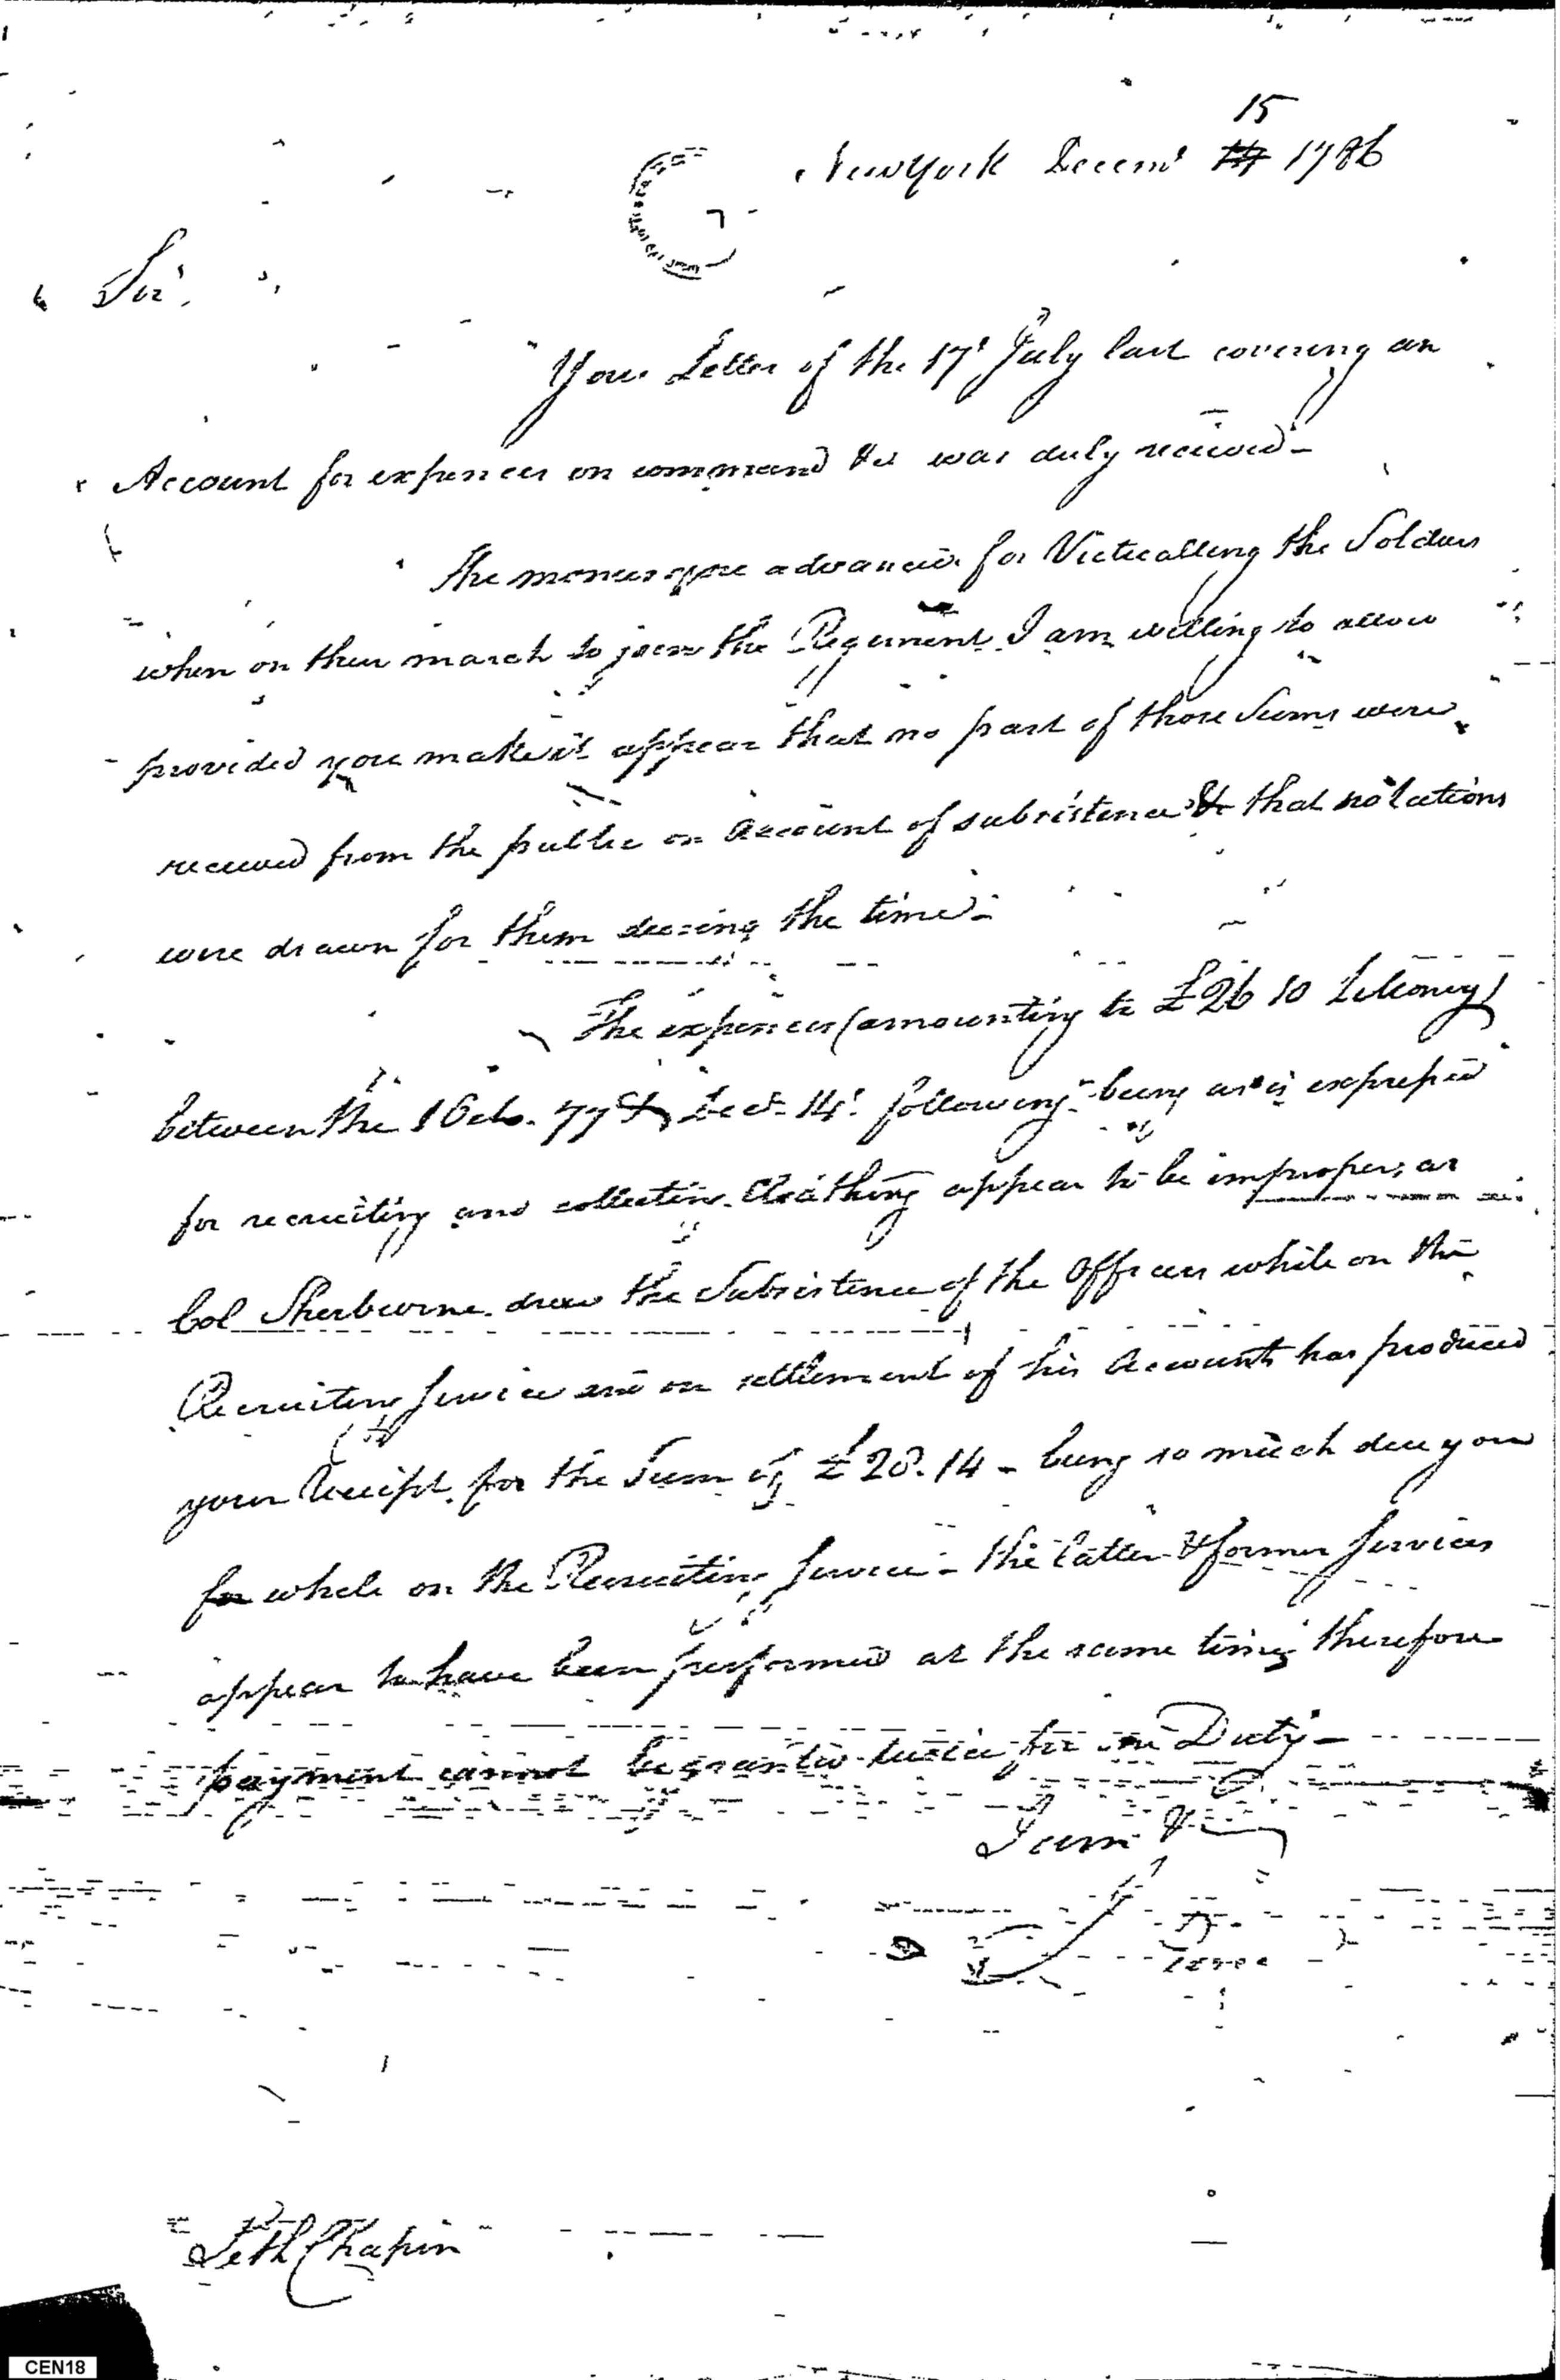 15
New York Decem^r 1786
Sir,
Your Letter of the 17^t July last covering an
Account for expences on command &c was duly received -
The monies you advanced for Victualling the Soldiers
when on their march to join the Regiment I am willing to allow
provided you make it appear that no part of those Sums were
received from the public on Account of subsistence & that no rations
were drawn for them during the time -
The expences (amounting to £26 10 L Money)
between the 1 Octo. 77 & Dec^r 14^t following being as is expressed
for recruiting and collecting Cloathing appear to be improper, as
Col Sherburne drew the Subsistence of the Officers while on the
Recruiting Service and on settlement of his Accounts has produced
your Receipt for the Sum of £ 28. 14 - being so much due you
for while on the Recruiting Service - the latter & former Services
appear to have been performed at the same time therefore
payment cannot be granted twice for one Duty -
I am &c
Seth Chapin
CEN18